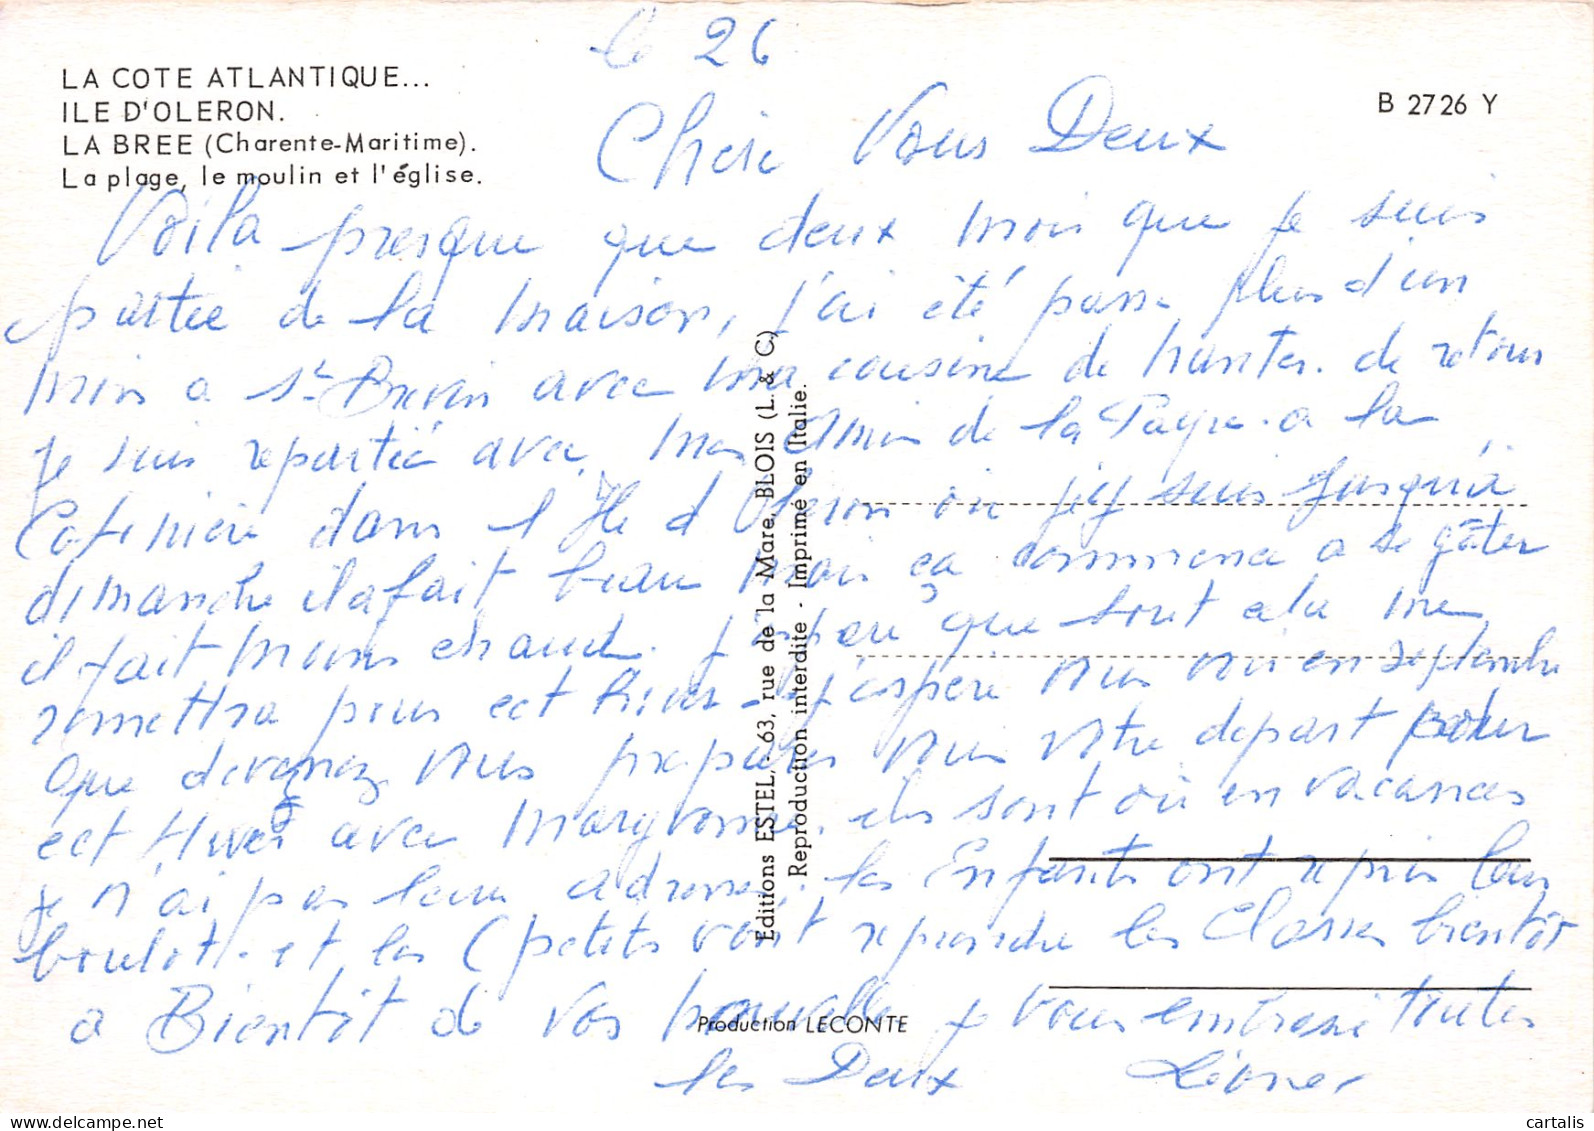 LA COTE ATLANTIQUE...
ILE D'OLERON.
LA BREE (Charente-Maritime).
La plage, le moulin et l'église.
B 2726 Y
Le 26
Chere Vous Deux
Voila presque que deux mois que je suis
partie de la maison, j'ai été passe plus d'un
mois a St Brevin avec ma cousine de Nantes. de retour
je suis repartie avec mes Amis de la a la
dans l Ile d Oleron ou j'y suis jusqu'à
dimanche il a fait beau mais ça commence a se gâter
il fait moins chaud. j'espere que tout cela me
remettra pour cet hiver - j'espere vous voir en septembre
que devenez vous preparez vous votre depart pour
cet Hiver avec Maryvonne. ils sont où en vacances
je n'ai pas leur adresse. les Enfants ont repris leur
boulot. et les petits vont reprendre les Classes bientôt
a Bientôt de vos nouvelles je vous embrasse toutes
les Deux
Editions ESTEL, - 63, rue de la Mare, BLOIS (L. & C.)
Reproduction interdite - Imprimé en Italie.
Production LECONTE
cartalis